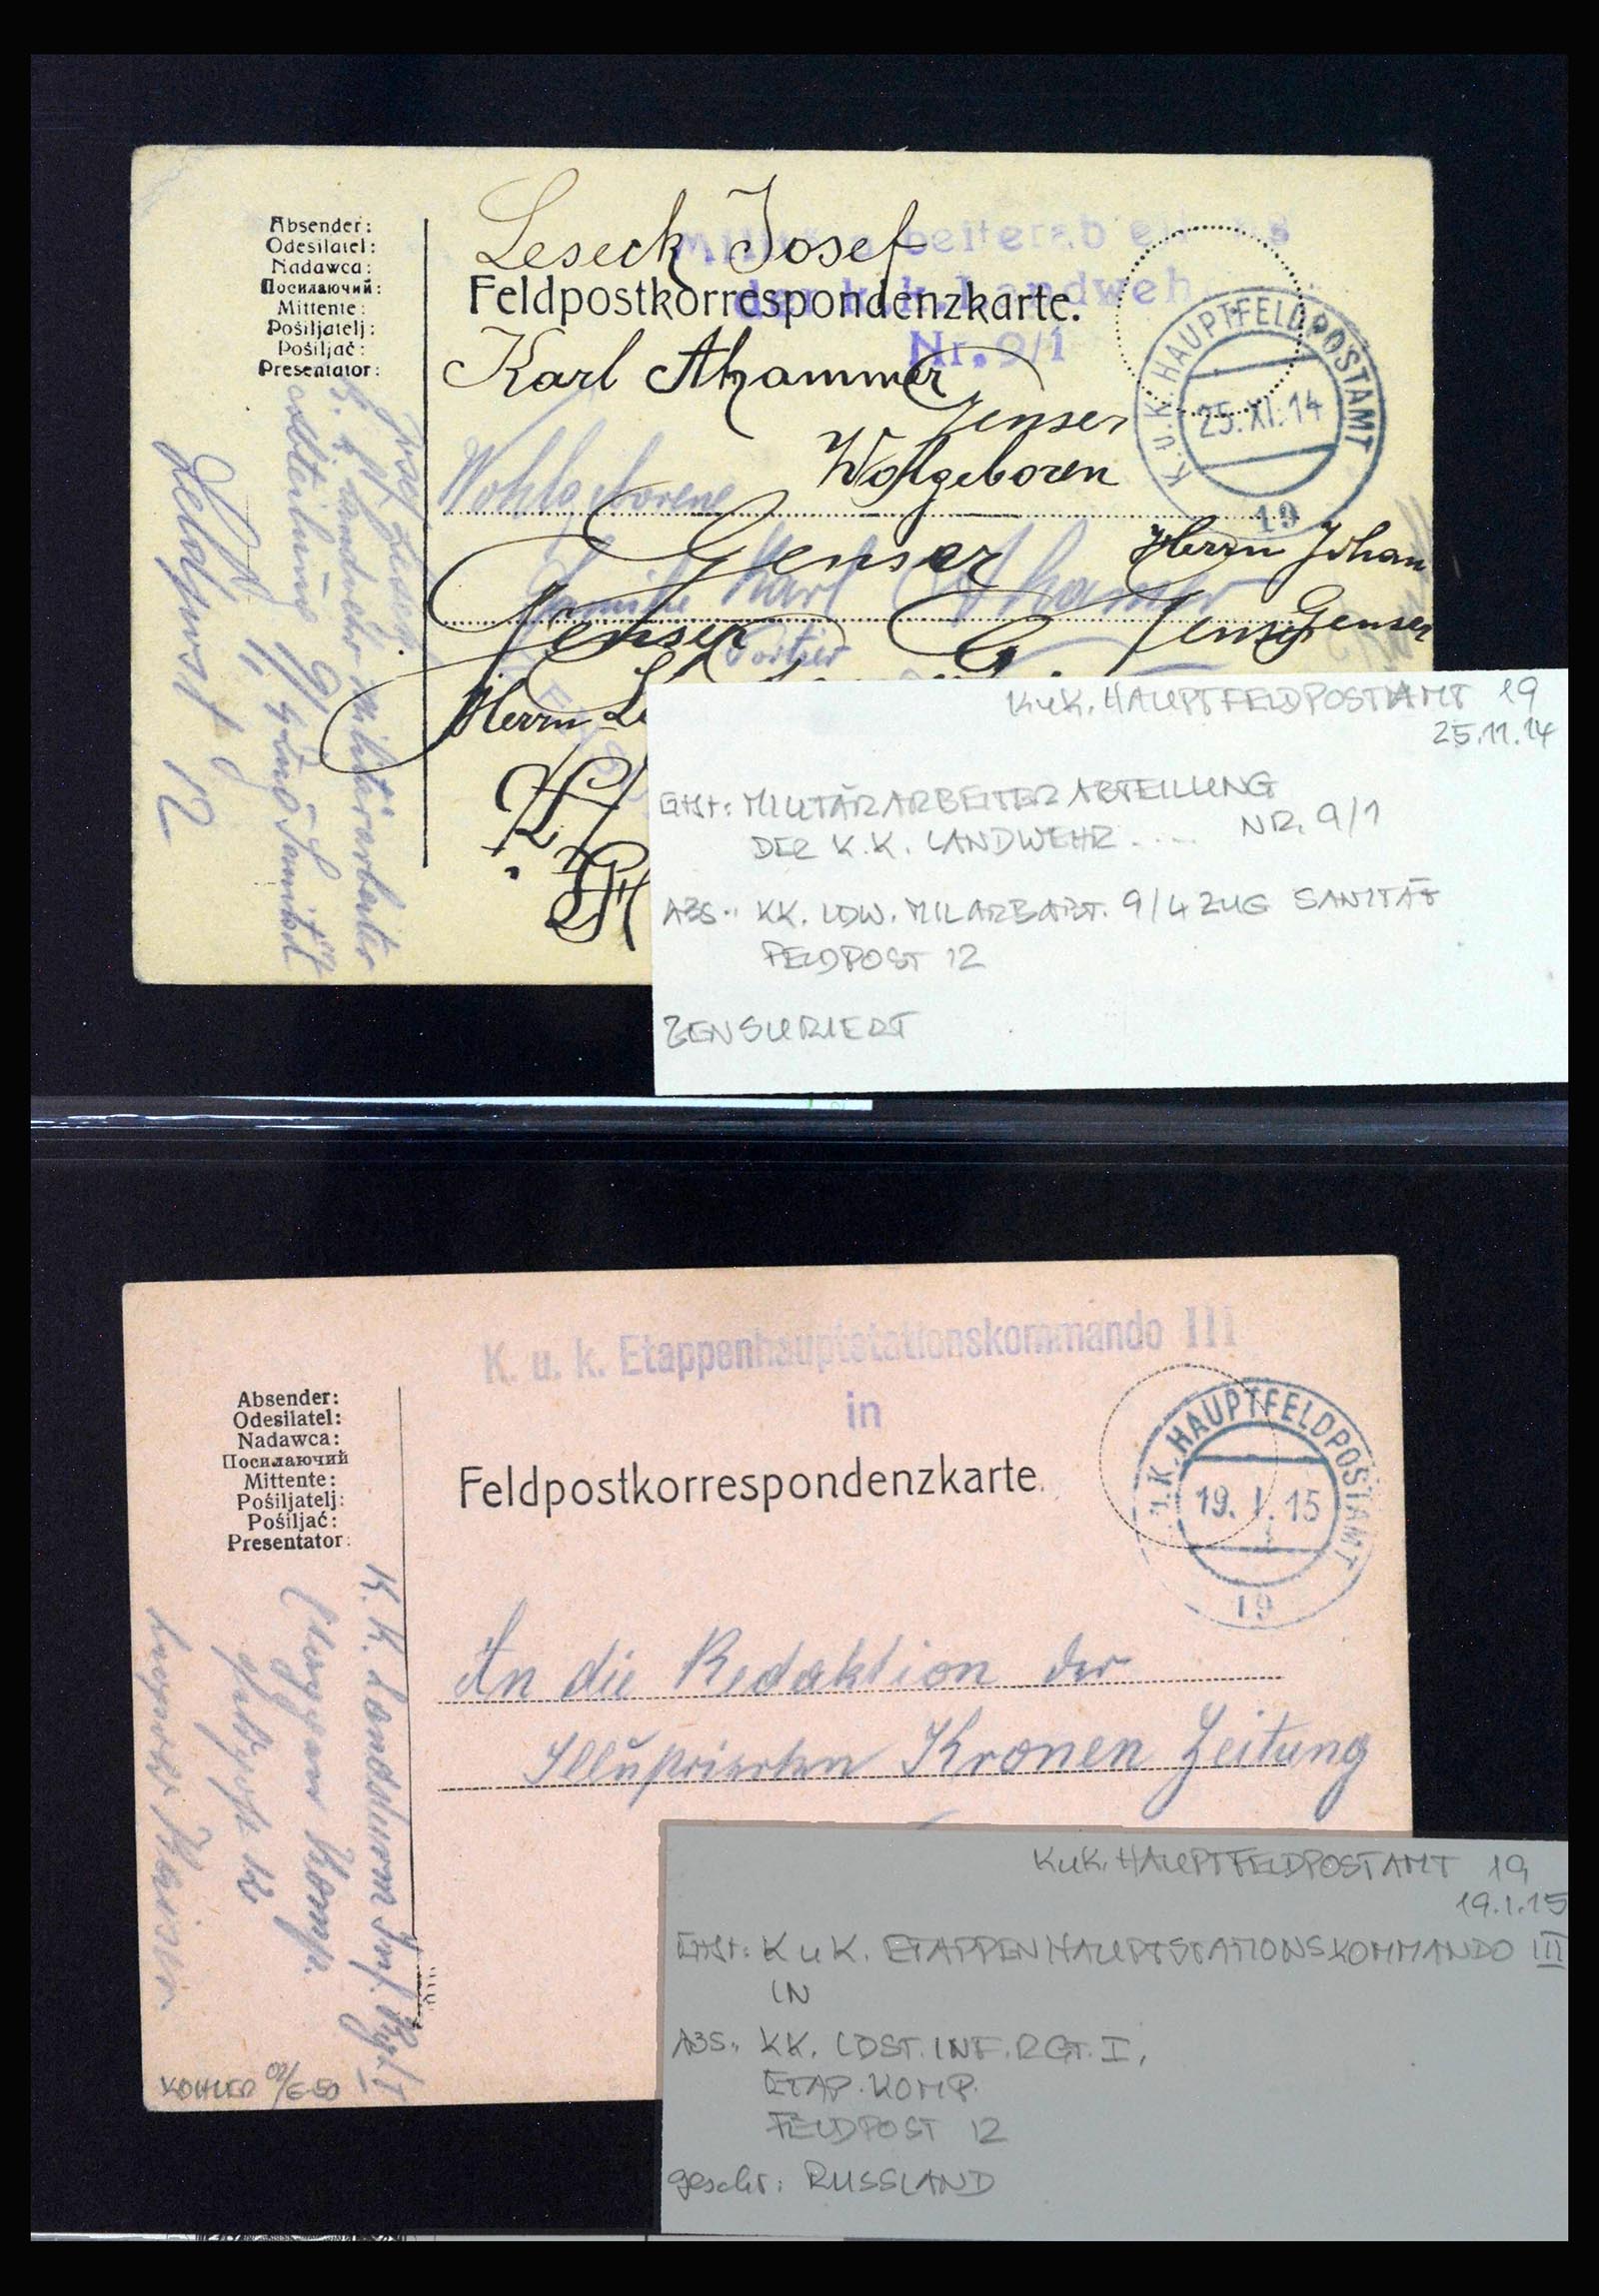 Absender:
Odesilatel:
Nadawca:
Посилаючий:
Mittente:
Pošiljatelj:
Pošiljač:
Presentator:
Leseck Josef
Feldpostkorrespondenzkarte.
der k.k. Landweh
Nr. 9/1
Karl
Jenser
Wohlgeboren
Wohlgeborene
Genser
Herrn Johan
Familie Karl
Portier
Genser
Herrn
K.U.K. HAUPTFELDPOSTAMT
25.XI.14
19
Feldpost 12
KuK. HAUPTFELDPOSTAMT 19
25.11.14
EHST: MILITÄRARBEITERABTEILUNG
DER K.K. LANDWEHR .... NR. 9/1
ABS.: KK. LDW. MILARBABT. 9/4 ZUG SANITÄT
FELDPOST 12
ZENSURIERT
K. u. k. Etappenhauptstationskommando III
in
Absender:
Odesilatel:
Nadawca:
Посилаючий
Mittente:
Pošiljatelj:
Pošiljač:
Presentator:
Feldpostkorrespondenzkarte.
U.K. HAUPTFELDPOSTAMT
19. I. 15
19
An die Redaktion der
Illustrierten Kronen Zeitung
K. K. Landsturm Inf. Rgt I
Etappen Komp.
Feldpost 12
KOHLER 02/E-50
KuK. HAUPTFELDPOSTAMT 19
19.1.15
EHST: K u K. ETAPPENHAUPTSTATIONSKOMMANDO III
IN
ABS.: KK. LDST. INF. RGT. I,
ETAP. KOMP.
FELDPOST 12
geschr: RUSSLAND